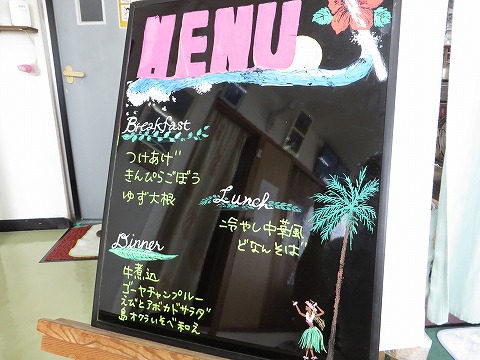 MENU
Breakfast
つけあげ
きんぴらごぼう
ゆず大根
Lunch
冷やし中華風
どなんそば
Dinner
牛煮込
ゴーヤチャンプルー
えびとアボカドサラダ
島オクラいそべ和え